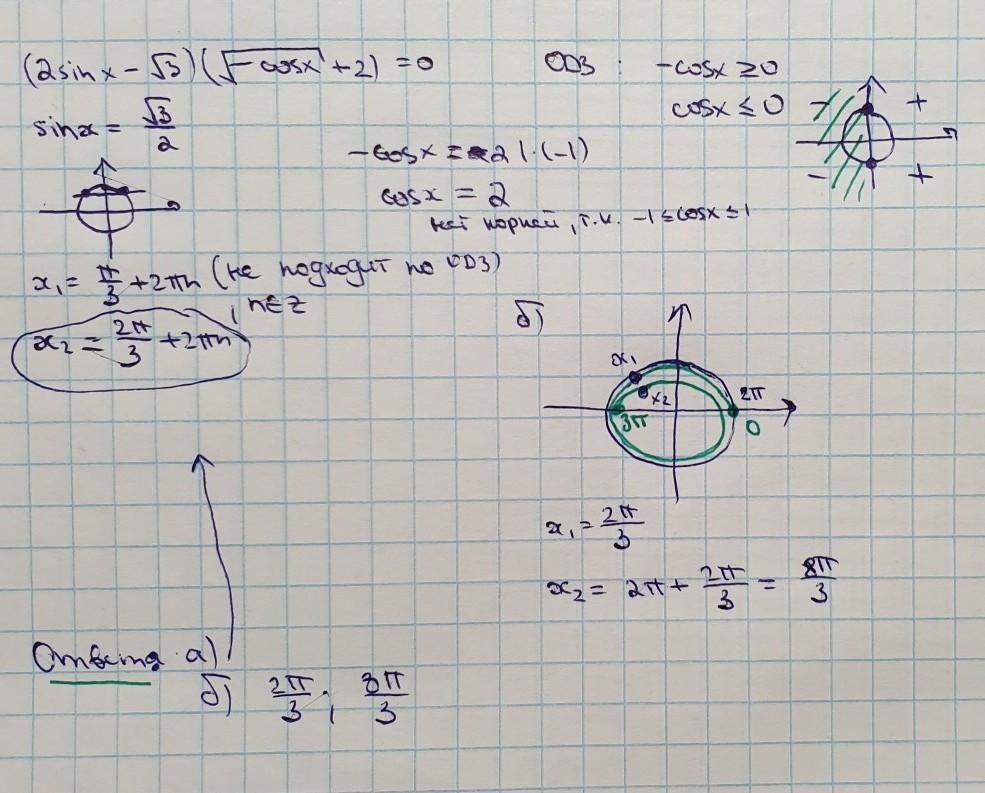 (2sinx − √3)(√−cosx + 2) = 0
ОДЗ : −cosx ≥ 0
cosx ≤ 0
− +
− +
sinx = √3/2
−cosx = −2 | ·(−1)
cosx = 2
нет корней, т.к. −1 ≤ cosx ≤ 1
x₁ = π/3 + 2πn (не подходит по ОДЗ)
, n∈Z
x₂ = 2π/3 + 2πn
б)
x₁
x₂
2π
3π
0
x₁ = 2π/3
x₂ = 2π + 2π/3 = 8π/3
Ответ а)
б) 2π/3 ; 8π/3